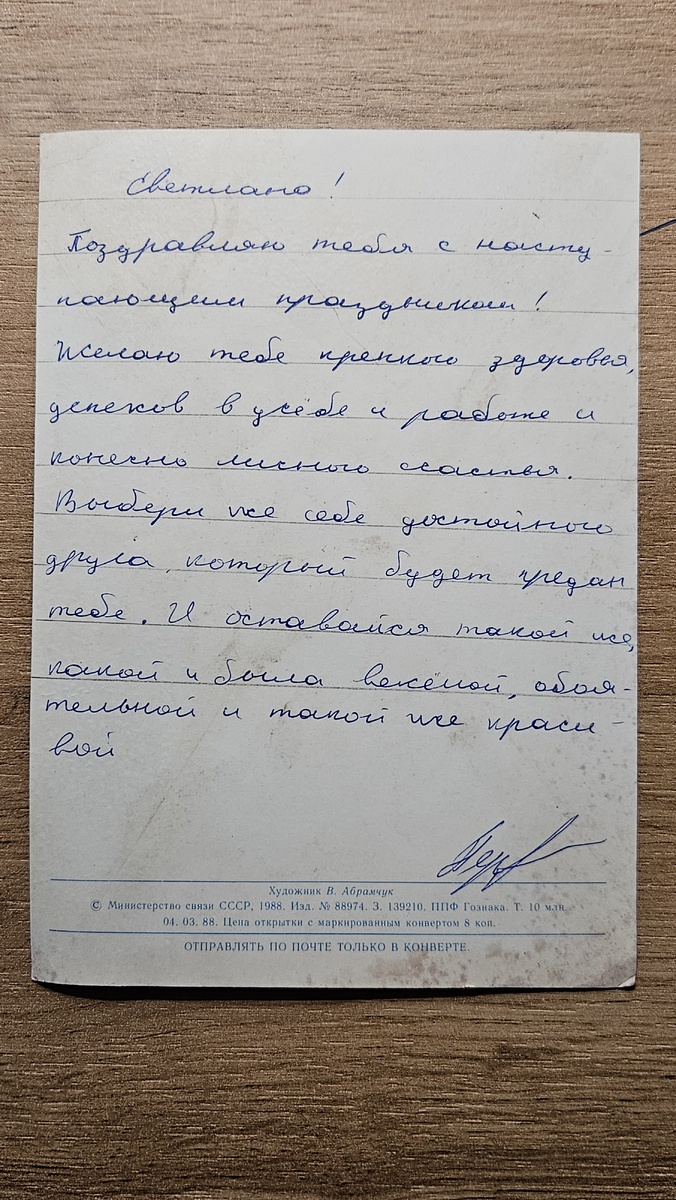 Светлана!
Поздравляю тебя с насту-
пающим праздником!
Желаю тебе крепкого здоровья,
успехов в учёбе и работе и
конечно личного счастья.
Выбери же себе достойного
друга, который будет предан
тебе. И оставайся такой же,
какой и была весёлой, обоя-
тельной и такой же краси-
вой
Художник В. Абрамчук
© Министерство связи СССР, 1988. Изд. № 88974. З. 139210. ППФ Гознака. Т. 10 млн.
04. 03. 88. Цена открытки с маркированным конвертом 8 коп.
ОТПРАВЛЯТЬ ПО ПОЧТЕ ТОЛЬКО В КОНВЕРТЕ.